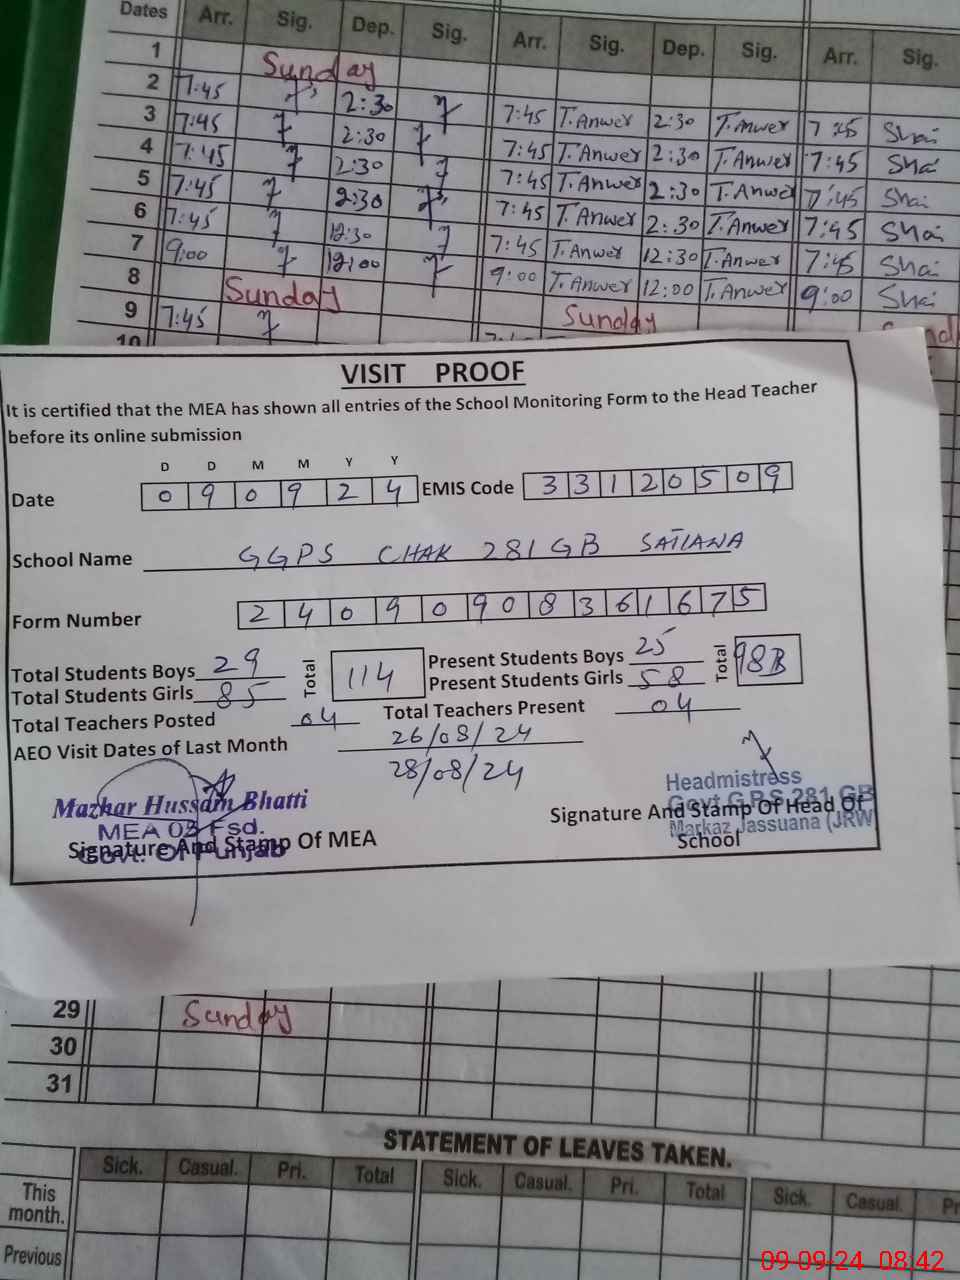 Dates Arr. Sig. Dep. Sig. Arr. Sig. Dep. Sig. Arr. Sig.
1 Sunday
2 7:45 2:30 7:45 T.Anwer 2:30 T.Anwer 7:45 Shai
3 7:45 2:30 7:45 T.Anwer 2:30 T.Anwer 7:45 Sha
4 7:45 2:30 7:45 T.Anwer 2:30 T.Anwer 7:45 Sha
5 7:45 2:30 7:45 T.Anwer 2:30 T.Anwer 7:45 Sha
6 7:45 12:30 7:45 T.Anwer 12:30 T.Anwer 7:45 Sha
7 9:00 12:00 9:00 T.Anwer 12:00 T.Anwer 9:00 Sha
8 Sunday Sunday
9 7:45
10
VISIT PROOF
It is certified that the MEA has shown all entries of the School Monitoring Form to the Head Teacher
before its online submission
D D M M Y Y
Date 0 9 0 9 2 4 EMIS Code 3 3 1 2 0 5 0 9
School Name GGPS CHAK 281 GB SATIANA
Form Number 2 4 0 9 0 9 0 8 3 6 1 6 7 5
Total Students Boys 29 Total 114 Present Students Boys 25 Total
Total Students Girls 85 Present Students Girls 58
Total Teachers Posted 04 Total Teachers Present 04
AEO Visit Dates of Last Month 26/08/24
28/08/24
Mazhar Hussain Bhatti
MEA 03 Fsd.
Govt. Of Punjab
Signature And Stamp Of MEA
Headmistress
Govt G.P.S 281 GB
Markaz Jassuana (JRW
Signature And Stamp Of Head Of
School
29 Sunday
30
31
STATEMENT OF LEAVES TAKEN.
Sick. Casual. Pri. Total Sick. Casual. Pri. Total Sick. Casual.
This
month.
Previous
09-09-24 08:42